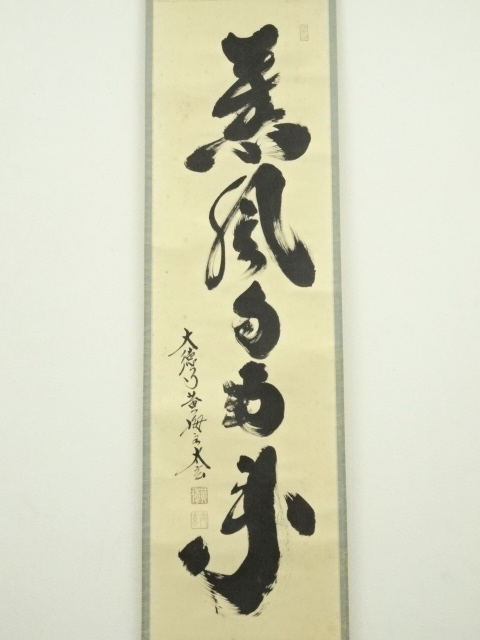 薫風自南来
大徳 黄梅 太玄